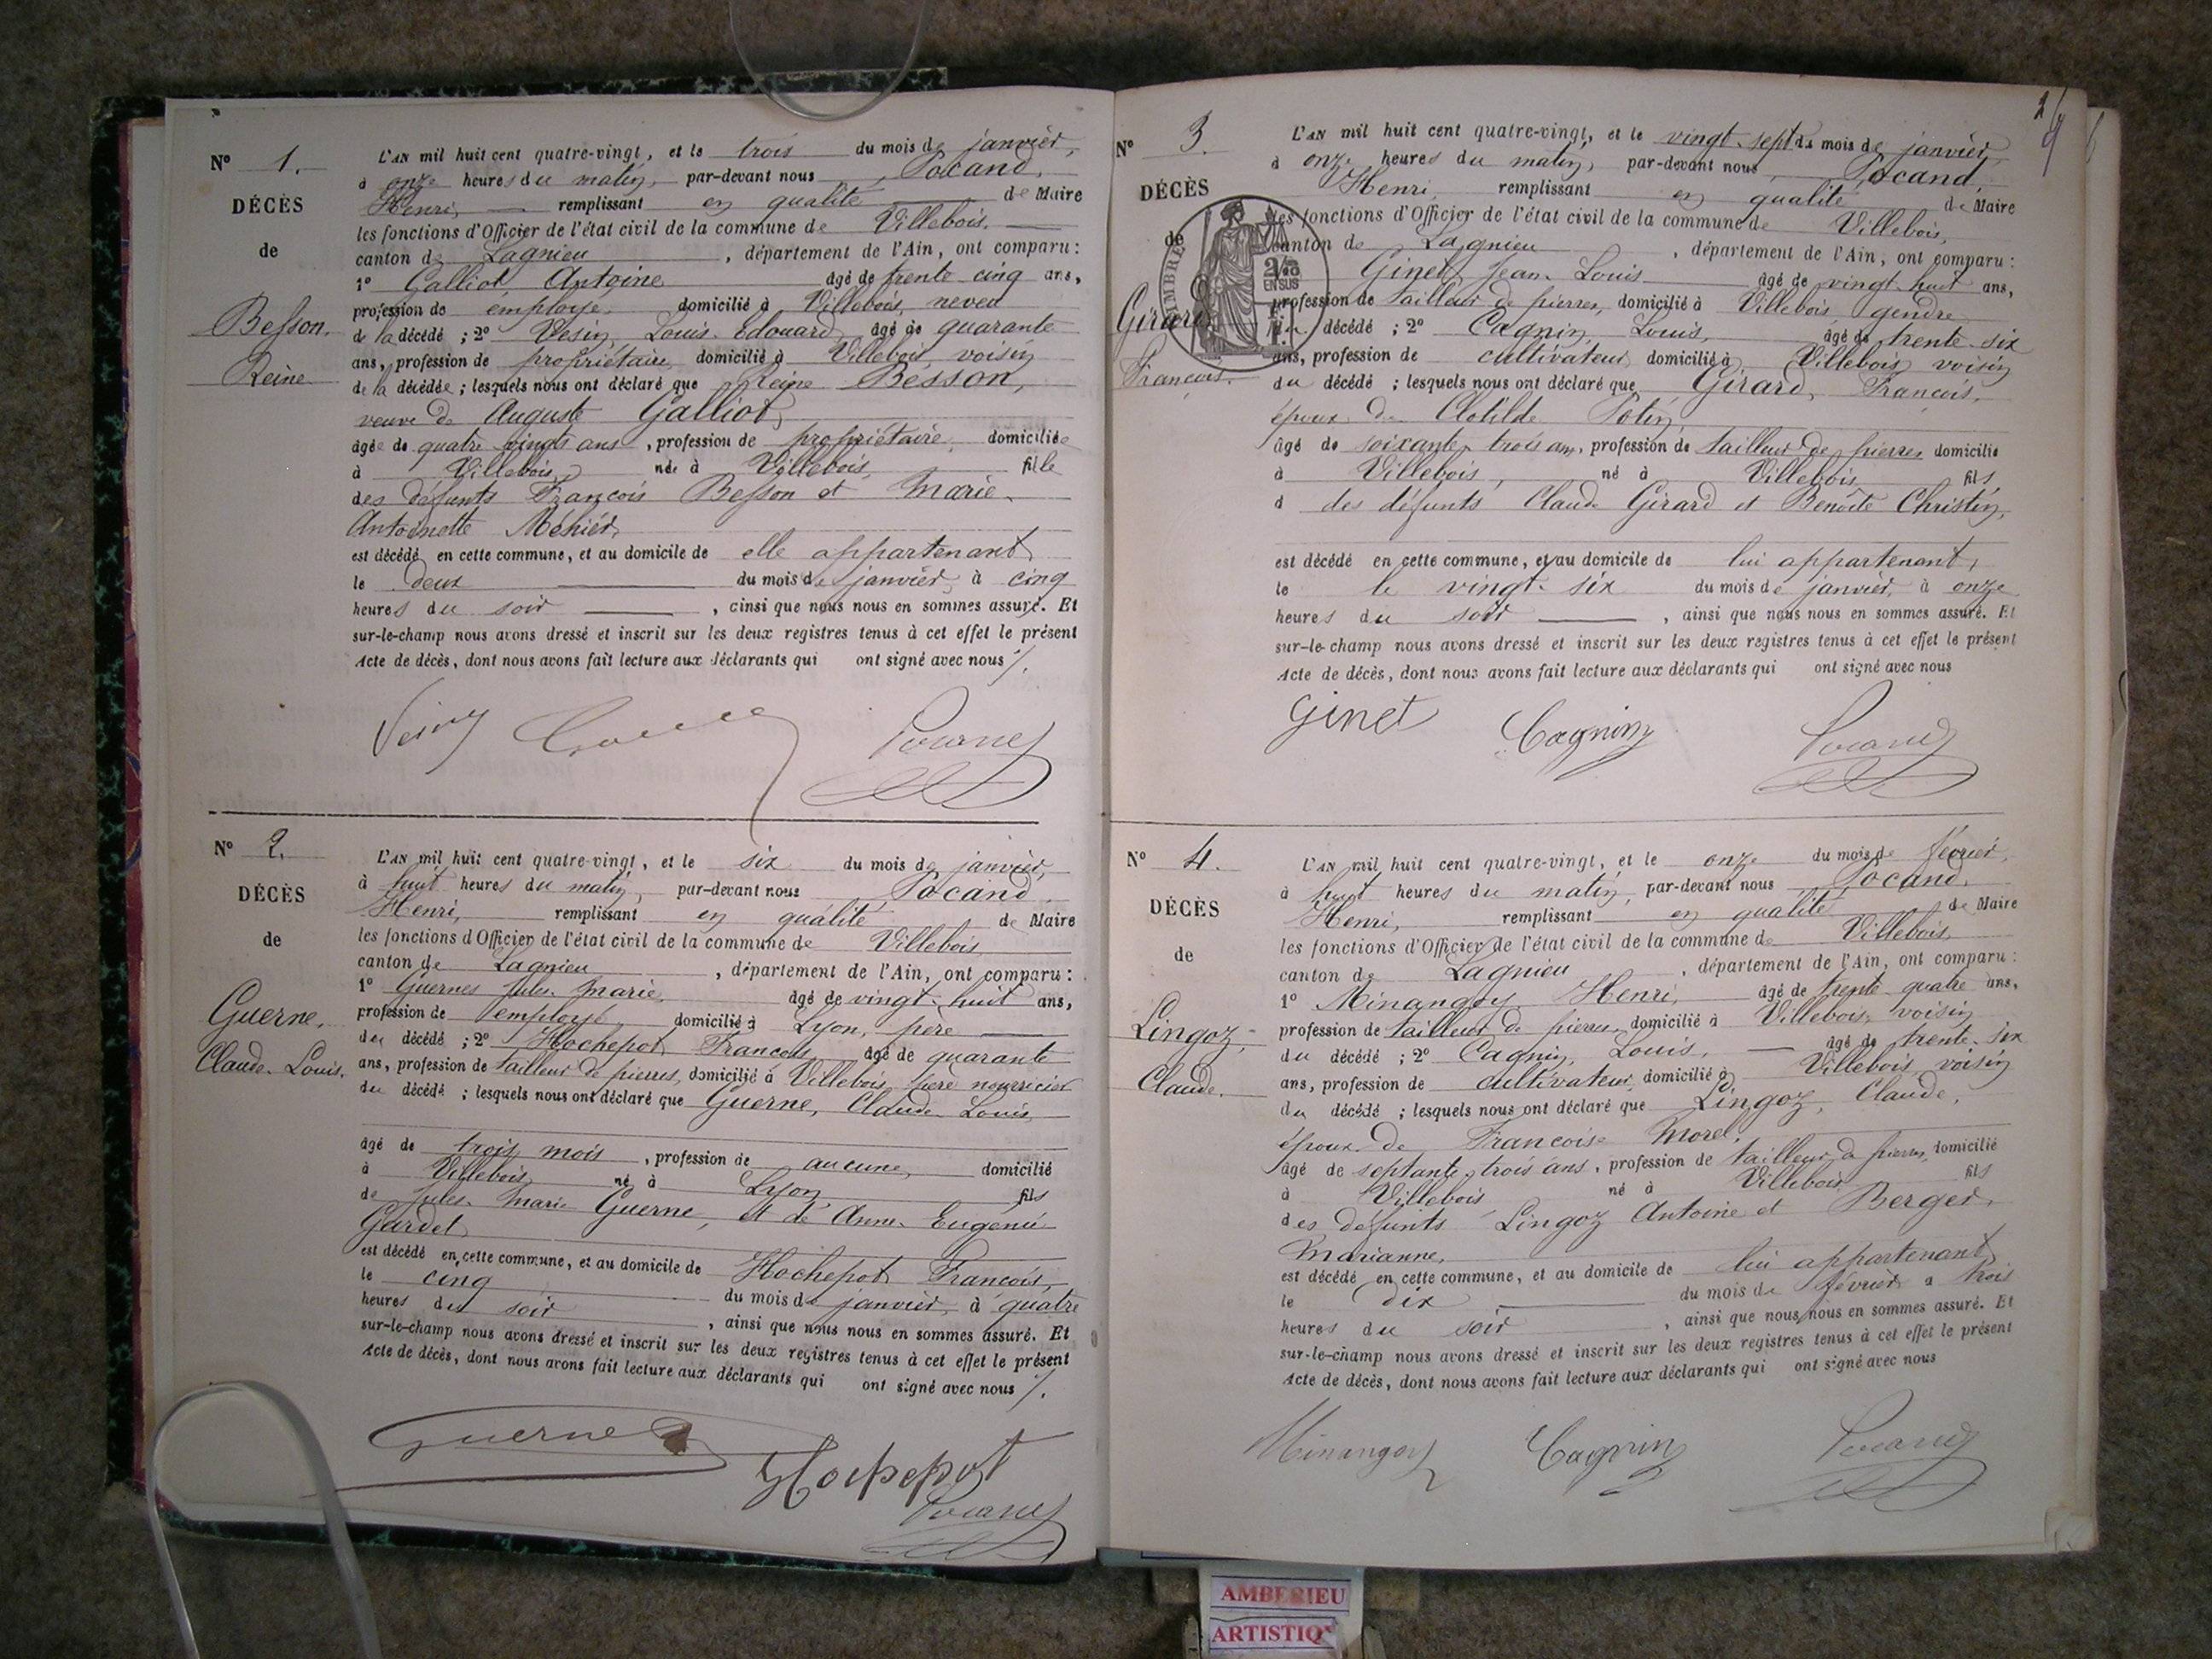 N° 1.
DÉCÈS
de
Besson.
Reine
L'AN mil huit cent quatre-vingt, et le trois du mois de janvier,
à onze heures du matin, par-devant nous, Pocand,
Henri, remplissant en qualité de Maire
les fonctions d'Officier de l'état civil de la commune de Villebois.
canton de Lagnieu, département de l'Ain, ont comparu :
1° Galliot Antoine âgé de trente cinq ans,
profession de employé, domicilié à Villebois, neveu
de la décédé ; 2° Vesin, Louis Edouard, âgé de quarante
ans, profession de propriétaire, domicilié à Villebois voisin
de la décédée ; lesquels nous ont déclaré que Reine Besson,
veuve de Auguste Galliot,
âgée de quatre vingts ans, profession de propriétaire, domiciliée
à Villebois, née à Villebois, fille
des défunts François Besson et Marie
Antoinette Méhier,
est décédé en cette commune, et au domicile de elle appartenant
le deux du mois de janvier, à cinq
heures du soir, ainsi que nous nous en sommes assuré. Et
sur-le-champ nous avons dressé et inscrit sur les deux registres tenus à cet effet le présent
Acte de décès, dont nous avons fait lecture aux déclarants qui ont signé avec nous
Vesin Pocand
N° 2.
DÉCÈS
de
Guerne,
Claude-Louis.
L'AN mil huit cent quatre-vingt, et le six du mois de janvier,
à huit heures du matin, par-devant nous Pocand
Henri, remplissant en qualité de Maire
les fonctions d'Officier de l'état civil de la commune de Villebois
canton de Lagnieu, département de l'Ain, ont comparu :
1° Guernes Jules Marie âgé de vingt-huit ans,
profession de employé, domicilié à Lyon, père
du décédé ; 2° Hochepot François âgé de quarante
ans, profession de tailleur de pierres, domicilié à Villebois, père nourricier
du décédé ; lesquels nous ont déclaré que Guerne, Claude Louis,
âgé de trois mois, profession de aucune, domicilié
à Villebois né à Lyon fils
de Jules Marie Guerne, et de Anne Eugénie
Gardet
est décédé en cette commune, et au domicile de Hochepot François,
le cinq du mois de janvier, à quatre
heures du soir, ainsi que nous nous en sommes assuré. Et
sur-le-champ nous avons dressé et inscrit sur les deux registres tenus à cet effet le présent
Acte de décès, dont nous avons fait lecture aux déclarants qui ont signé avec nous
Guerne
Hochepot
Pocand
N° 3.
DÉCÈS
de
Girard
François.
TIMBRE
EN SUS
L'AN mil huit cent quatre-vingt, et le vingt-sept du mois de janvier,
à onze heures du matin, par-devant nous, Pocand,
Henri, remplissant en qualité de Maire
les fonctions d'Officier de l'état civil de la commune de Villebois,
canton de Lagnieu, département de l'Ain, ont comparu :
Ginet, Jean-Louis âgé de vingt-huit ans,
profession de tailleur de pierres, domicilié à Villebois, gendre
du décédé ; 2° Cagnin, Louis, âgé de trente-six
ans, profession de cultivateur, domicilié à Villebois voisin
du décédé ; lesquels nous ont déclaré que Girard, François,
époux de Clotilde Potin,
âgé de soixante-trois ans, profession de tailleur de pierres domicilié
à Villebois, né à Villebois fils
d des défunts Claude Girard et Benoîte Christin,
est décédé en cette commune, et au domicile de lui appartenant,
le le vingt-six du mois de janvier, à onze
heures du soir, ainsi que nous nous en sommes assuré. Et
sur-le-champ nous avons dressé et inscrit sur les deux registres tenus à cet effet le présent
Acte de décès, dont nous avons fait lecture aux déclarants qui ont signé avec nous
Ginet Cagnin Pocand
N° 4.
DÉCÈS
de
Lingoz,
Claude.
L'AN mil huit cent quatre-vingt, et le onze du mois de février,
à huit heures du matin, par-devant nous Pocand,
Henri, remplissant en qualité de Maire
les fonctions d'Officier de l'état civil de la commune de Villebois,
canton de Lagnieu, département de l'Ain, ont comparu :
1° Minangoy Henri, âgé de trente-quatre ans,
profession de tailleur de pierres, domicilié à Villebois, voisin
du décédé ; 2° Cagnin, Louis, âgé de trente-six
ans, profession de cultivateur, domicilié à Villebois voisin
du décédé ; lesquels nous ont déclaré que Lingoz, Claude,
époux de Françoise Morel,
âgé de septante-trois ans, profession de tailleur de pierres, domicilié
à Villebois né à Villebois fils
des défunts Lingoz Antoine et Berger,
Marianne,
est décédé en cette commune, et au domicile de lui appartenant,
le dix du mois de février à trois
heures du soir, ainsi que nous nous en sommes assuré. Et
sur-le-champ nous avons dressé et inscrit sur les deux registres tenus à cet effet le présent
Acte de décès, dont nous avons fait lecture aux déclarants qui ont signé avec nous
Minangoy Cagnin Pocand
AMBERIEU
ARTISTIQ